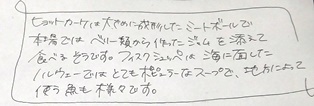 ヒョットカーケは大きめに成形したミートボールで
本場ではベリー類から作ったジャムを添えて
食べるそうです。フィスクシュッペは海に面した
ノルウェーではとてもポピュラーなスープで、地方によって
使う魚も様々です。